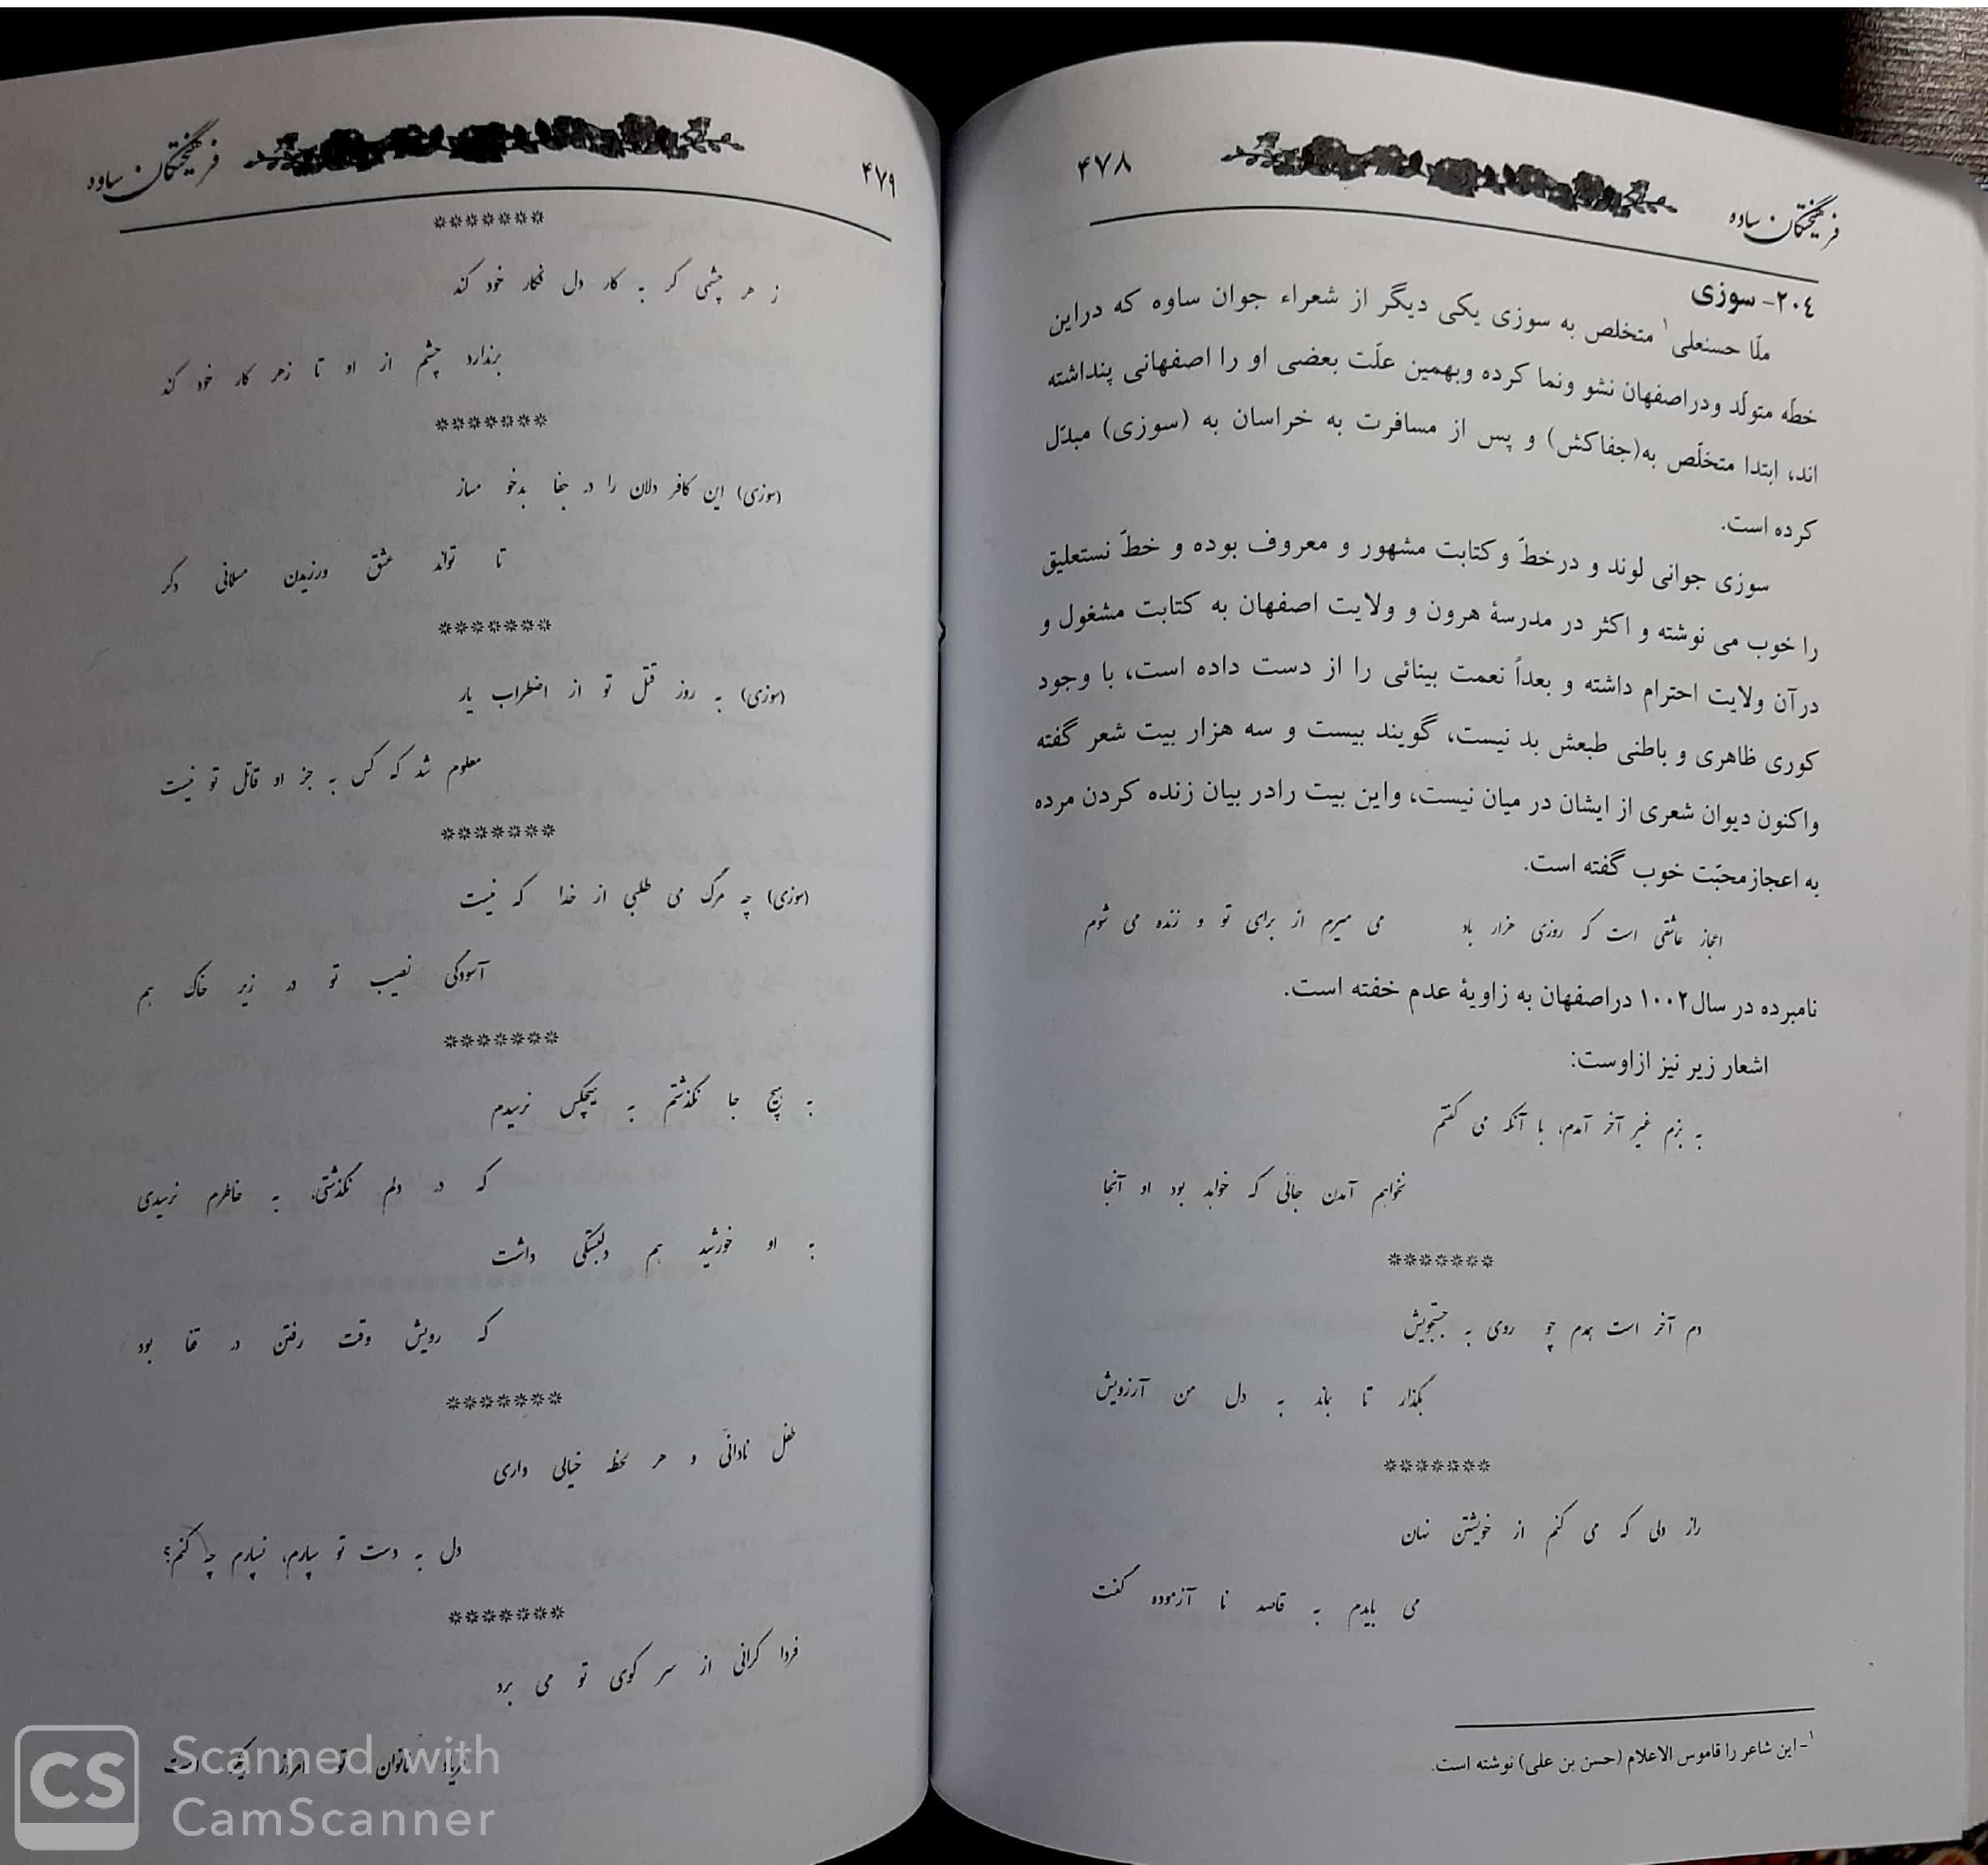 ۴۷۸
فرهیختگان ساوه
۲۰٤- سوزی
ملّا حسنعلی۱ متخلص به سوزی یکی دیگر از شعراء جوان ساوه که دراین
خطّه متولّد ودراصفهان نشو ونما کرده وبهمین علّت بعضی او را اصفهانی پنداشته
اند، ابتدا متخلّص به(جفاکش) و پس از مسافرت به خراسان به (سوزی) مبدّل
کرده است.
سوزی جوانی لوند و درخطّ وکتابت مشهور و معروف بوده و خطّ نستعلیق
را خوب می نوشته و اکثر در مدرسۀ هرون و ولایت اصفهان به کتابت مشغول و
درآن ولایت احترام داشته و بعداً نعمت بینائی را از دست داده است، با وجود
کوری ظاهری و باطنی طبعش بد نیست، گویند بیست و سه هزار بیت شعر گفته
واکنون دیوان شعری از ایشان در میان نیست، واین بیت رادر بیان زنده کردن مرده
به اعجازمحبّت خوب گفته است.
اعجاز عاشقی است که روزی هزار باد می میرم از برای تو و زنده می شوم
نامبرده در سال۱۰۰۲ دراصفهان به زاویۀ عدم خفته است.
اشعار زیر نیز ازاوست:
به بزم غیر آخر آمدم، با آنکه می گفتم
نخواهم آمدن جائی که خواهد بود او آنجا
*******
دم آخر است همدم چو روی به جستجویش
بگذار تا بماند به دل من آرزویش
*******
راز دلی که می کنم از خویشتن نهان
می بایدم به قاصد نا آزموده گفت
۱-این شاعر را قاموس الاعلام (حسن بن علی) نوشته است.
۴۷۹
فرهیختگان ساوه
*******
ز هر چشمی گر به کار دل فکار خود کند
برندارد چشم از او تا زهر کار خود کند
*******
(سوزی) این کافر دلان را در جفا بدخو مساز
تا تواند عشق ورزیدن مسلمانی دگر
*******
(سوزی) به روز قتل تو از اضطراب یار
معلوم شد که کس به جز او قاتل تو نیست
*******
(سوزی) چه مرگ می طلبی از خدا که نیست
آسودگی نصیب تو در زیر خاک هم
*******
به هیچ جا نگذشتم به هیچکس نرسیدم
که در دلم نگذشتی، به خاطرم نرسیدی
به او خورشید هم دلبستگی داشت
که رویش وقت رفتن در قفا بود
*******
طفل نادانی و هر لحظه خیالی داری
دل به دست تو سپارم، نسپارم چه کنم؟
*******
فردا گرانی از سر کوی تو می برد
ناتوان تو امروز است
CS Scanned with
CamScanner